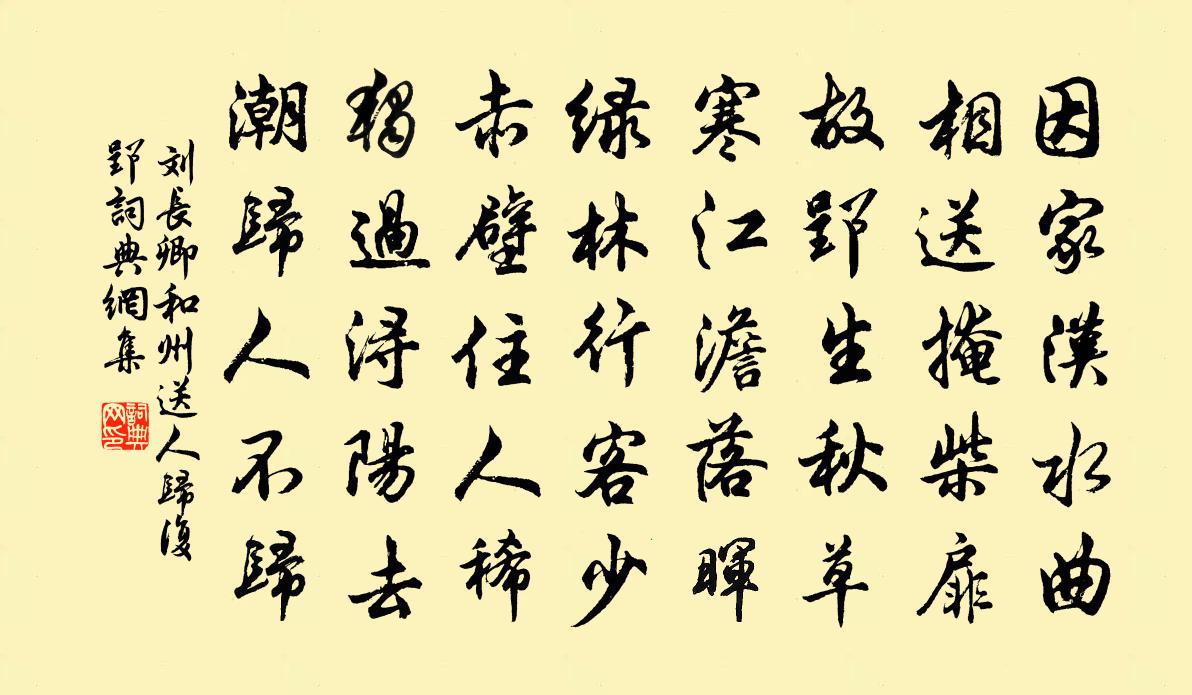 因家漢水曲
相送掩柴扉
故郢生秋草
寒江澹落暉
緑林行客少
赤壁住人稀
獨過浔陽去
潮歸人不歸
刘長卿和州送人歸復
郢詞典網集
詞典网印